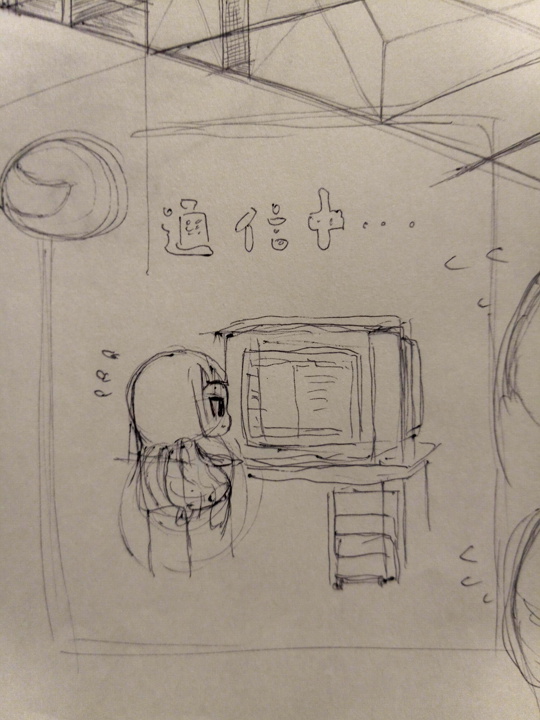 通信中...